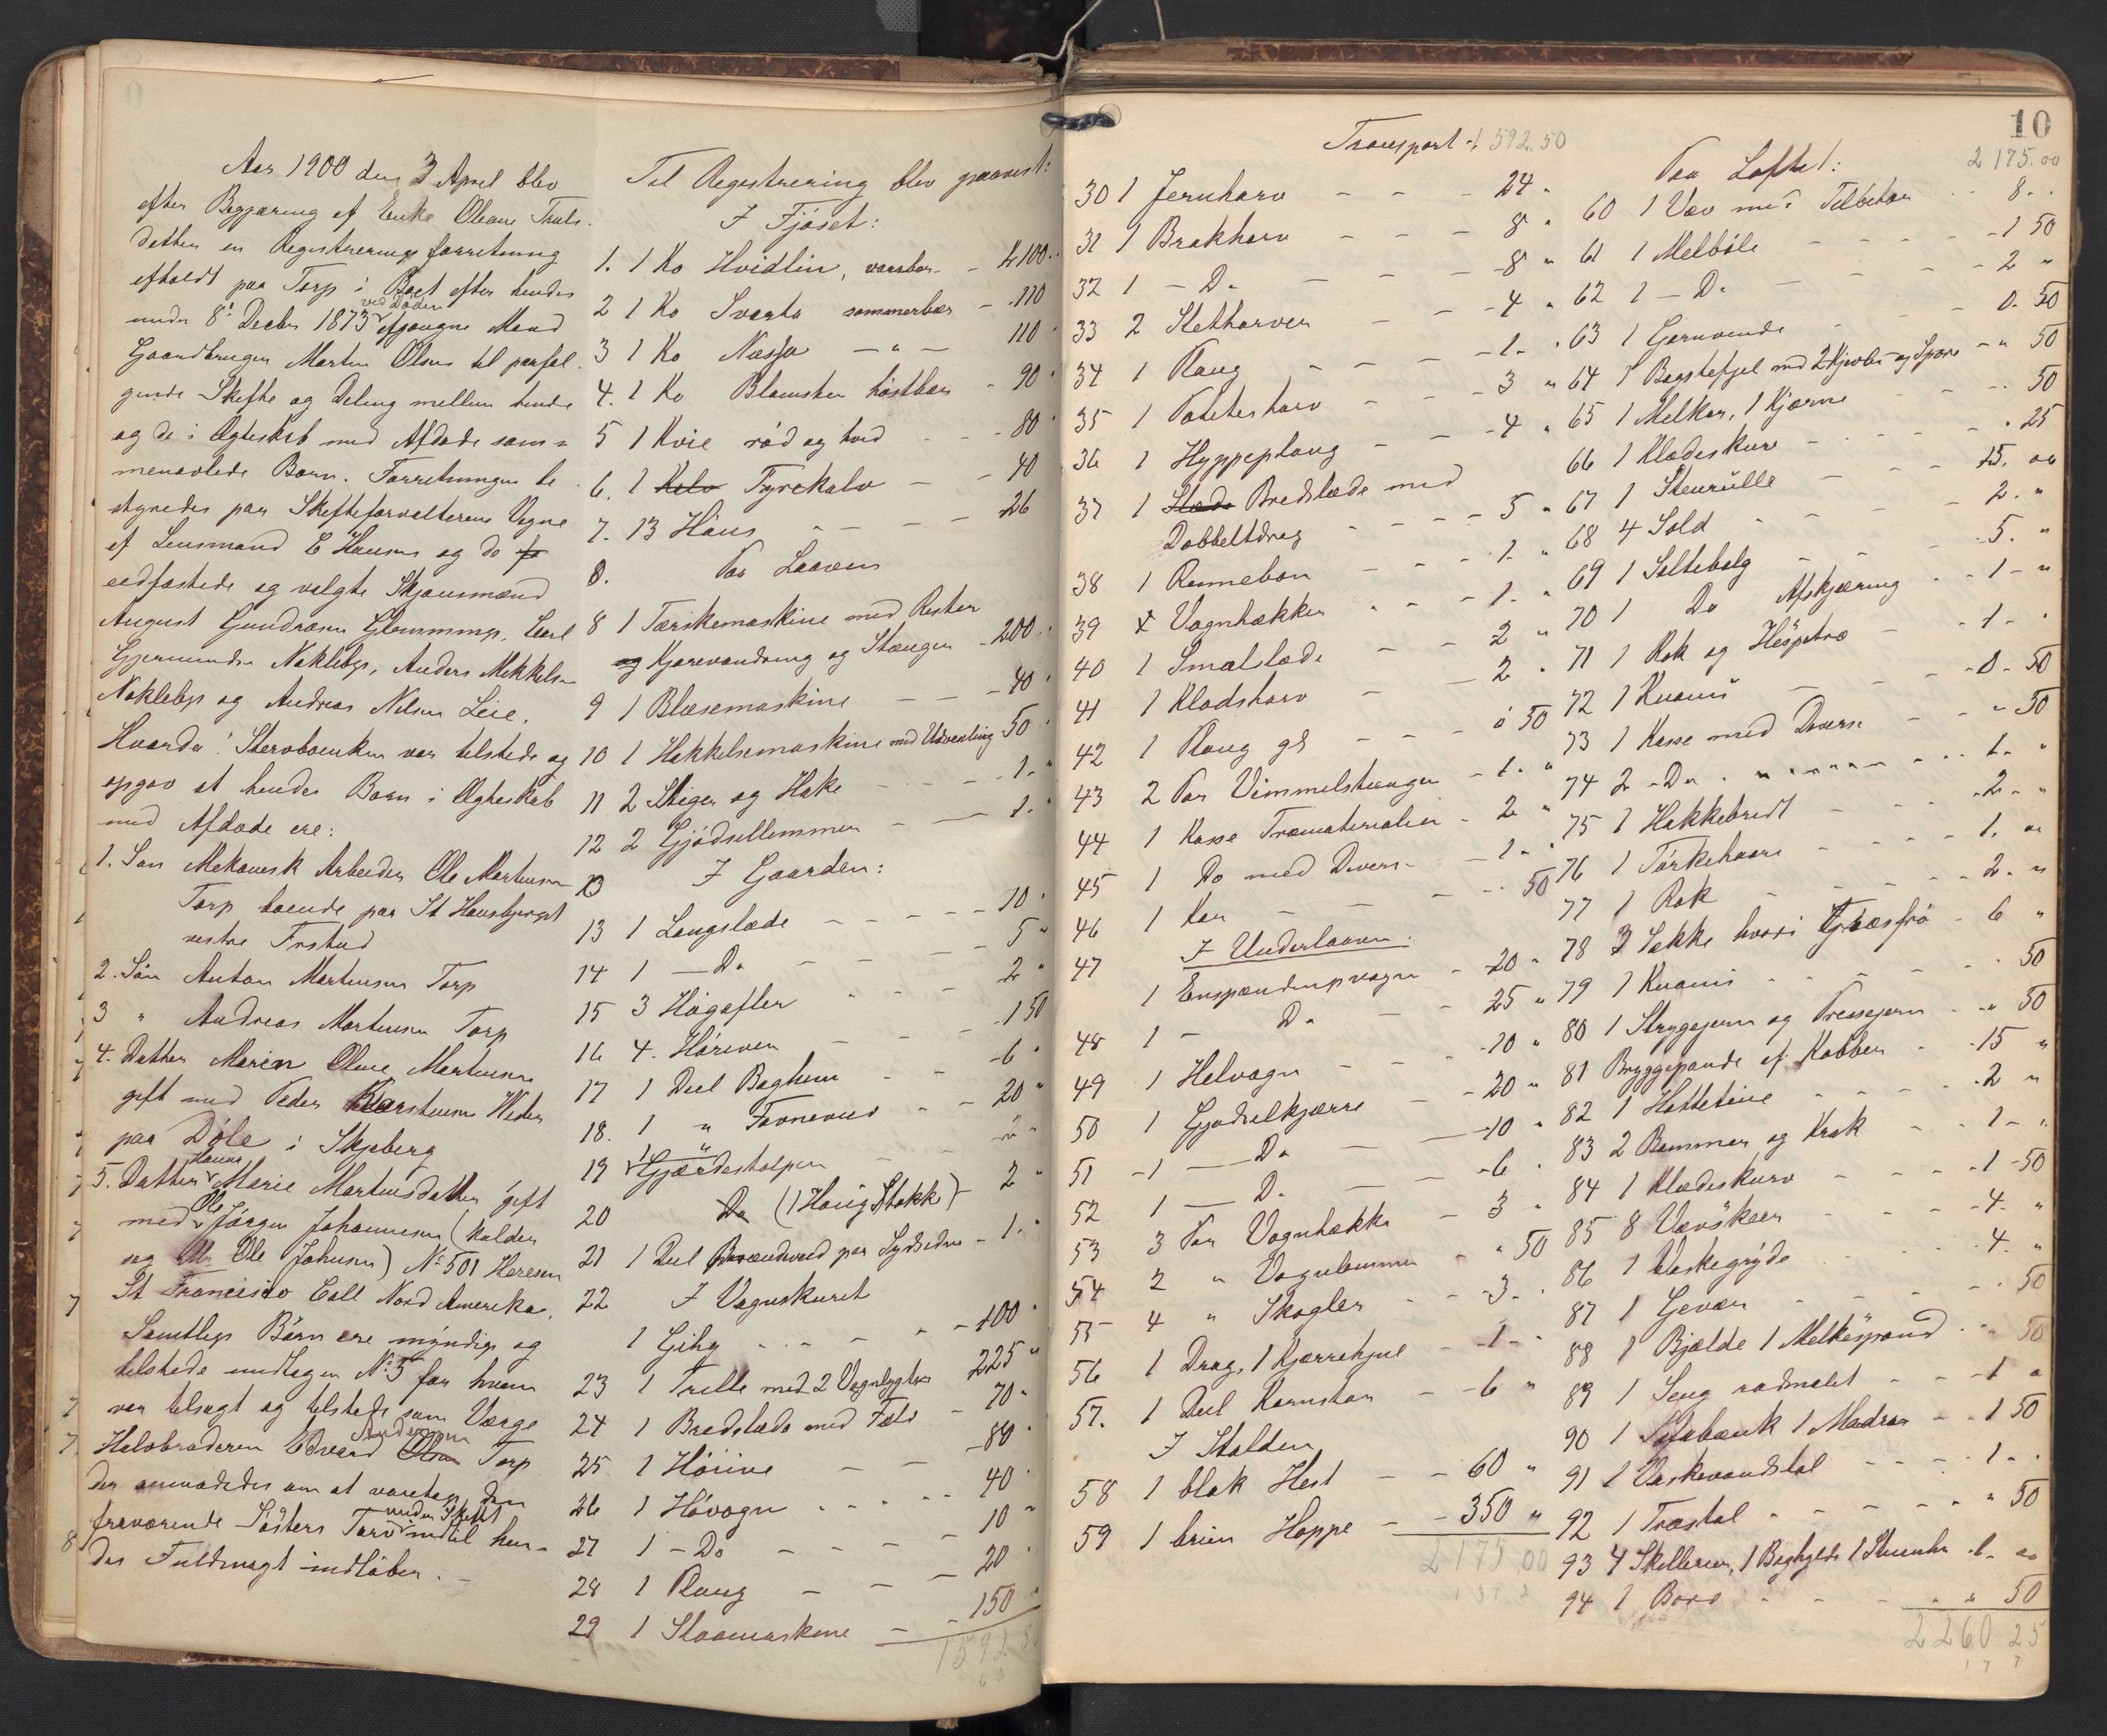 Aar 1900 den 3 April blev
efter Begjæring af Enke Oleane Truls-
datter en Registreringsforretning
afholdt paa Torp i Boet efter hendes
under 8' Decbr 1873 ved Døden afgangne Mand
Gaardbruger Martin Olsen til paaføl-
gende Skifte og Deling mellem hende
og de i Ægteskab med Afdøde sam-
menavlede Børn. Forretningen be-
styredes paa Skifteforvalterens Vegne
af Lensmand E Hansen og de
eedfæstede og valgte Skjønsmænd
August Gundersen Glomming, Carl
Gjermundsen Nokleby, Anders Mikkelsen
Nokleby og Andreas Nilsen Leie.
Hvorda! Stervboenken var tilstede og
opgav at hendes Børn i Ægteskab
med Afdøde ere:
1. Søn Mekanisk Arbeider Ole Martinsen
Torp boende paa St Hansbjerget
vestre Frstad
2. Søn Anton Martinsen Torp
3 " Andreas Martinsen Torp
4. Datter Maren Oline Martinsen
gift med Peder Karstensen Weden
paa Døle i Skjeberg
5. Datter Hanna Marie Martinsdatter gift
med Ole Jørgen Johannesen (kalder
sig Ole Johnsen) No 501
St Francisco Call Nord Amerika.
Samtlige Børn ere myndige og
tilstede undtagen No 5 for hvem
var tilsagt og tilstede som Værge
Halvbroderen Edvard Andersen Torp
der anmodedes om at varetage den
fraværende Søsters Tarv under Skiftet indtil hen-
des Fuldmagt indløber. -
Til Registrering blev paavist:
I Fjøset:
1. 1 Ko Hvidlin, vaarbær - K 100 "
2 1 Ko Svarta sommerbær - 110
3 1 Ko Næsfa - " - 110 "
4. 1 Ko Blomster høstbær - 90 "
5 1 Kvie rød og hvid - 80 "
6. 1 Kalv Tyrekalv - - 40
7. 13 Høns - - - 26
8. Paa Laaven
8 1 Tærskemaskine med Rister
og Kjørevandring og Stænger - 200 "
9 1 Blæsemaskine - - 40 "
10 1 Hakkelsemaskine med Udvexling 50 "
11 2 Stiger og Hake - - 1. "
12 2 Gjødsellemmer - - 1. "
13 I Gaarden:
13 1 Langslæde - - - 10 "
14 1 - Do - - - 5 "
15 3 Høgafler - - - 2 "
16 4. Høriver - - - 1 50
17 1 Deel Baghun - - 6 "
18. 1 " Favneved - - 20 "
19 1 " Gjærdestolper - - 2 "
20 Do (1 Haug Stokk) - 2 "
21 1 Deel Brændeved paa Sydsiden - 1. "
22 I Vognskuret
1 Gihg - - - 100 "
23 1 Trille med 2 Vognlygter 225 "
24 1 Bredslæde med Fæld - 70 "
25 1 - - 80 "
26 1 Høvogn - - - 40 "
27 1 - Do - - - 10 "
28 1 Ploug - - - 20 "
29 1 Slaamaskine - - 150 "
1592 50
10
Transport 1592.50
30 1 Jernharv - - 24 "
31 1 Brakharv - - 8 "
32 1 - Do - - 8 "
33 2 Sletharver - - 4 "
34 1 Ploug - - 1 - "
35 1 Potetesharv - - 3 "
36 1 Hyppeploug - - 4 "
37 1 Slæde Bredslæde med
Dobbeltdrag - - 5 "
38 1 Rennebom - - 1. "
39 Vognhækker - - 1. "
40 1 Smalslæde - - 2 "
41 1 Klodsharv - - 2 "
42 1 Ploug gl - - 0 50
43 2 Par Vimmelstænger - 1. "
44 1 Kasse Træmaterialier - 2 "
45 1 Do med Divers - - 1 - "
46 1 Kar - - - 50
47 I Underlaaven:
1 Enspændervogn - 20 "
48 1 - Do - 25 "
49 1 Helvogn - - 10 "
50 1 Gjødselkjærre - - 20 "
51 1 - Do - 10 "
52 1 - Do - 6 "
53 3 Par Vognhække - 3 "
54 2 " Vognlemmer - " 50
55 4 " Skogler - - 3 - "
56 1 Drag, 1 Kjærrehjul - 1 - "
57. 1 Deel Kornstør - - 6 "
I Stalden
58 1 blak Hest - - 60 "
59 1 brun Hoppe - - 350 "
2175 00
Paa Loftet: 2175.00
60 1 Væv med Tilbehør - - 8 - "
61 1 Melbøle - - 1 50
62 1 - Do - - 2 "
63 1 Garnvinde - - 0. 50
64 1 Bagstefjel med 2 Kjevler og Spove - " 50
65 1 Melkar, 1 Kjærne - - " 50
66 1 Klædeskurv - - " 25
67 1 Stenrulle - - 15. 00
68 4 Sold - - 2. "
69 1 Saltebalg - - 5. "
70 1 Do Afskjæring - - 1 - "
71 1 Rok og Hespetræ - - 1 - "
72 1 - - 0 - 50
73 1 Kasse med Diverse - - " 50
74 2 - Do - - 1. "
75 1 Hakkebredt - - 2 - "
76 1 Tørkehaare - - 1. "
77 1 Rok - - 2. "
78 3 Sække hvori Græsfrø - 6 "
79 1 - - " 50
80 1 Strygejern og Pressejern - " 50
81 Bryggepande af Kobber - 15 "
82 1 Hattetine - - 2 "
83 2 Bommer og Krak - - 1 - "
84 1 Klædeskurv - - 1 - 50
85 8 Vævskeer - - 4. "
86 1 Vaskegryde - - 4. "
87 1 Gevær - - " 50
88 1 Bjælde 1 Melkespand - " 50
89 1 Seng rødmalet - - 1 "
90 1 Sofabænk 1 Madras - - 1 50
91 1 Vaskevandstol - - 1 - "
92 1 Træstol - - " 50
93 4 Skillerier, 1 Baghylde 1 - 1 - "
94 1 Bord - - " 50
2260 25